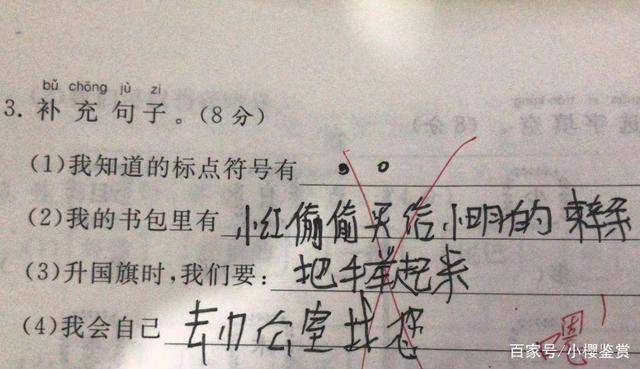 bǔ chōng jù zi
3. 补充句子。(8分)
(1)我知道的标点符号有 , 。
(2)我的书包里有 小红偷偷买给小明的辣条
(3)升国旗时,我们要: 把手举起来
(4)我会自己 去办公室找您
嗯
百家号/小樱鉴赏